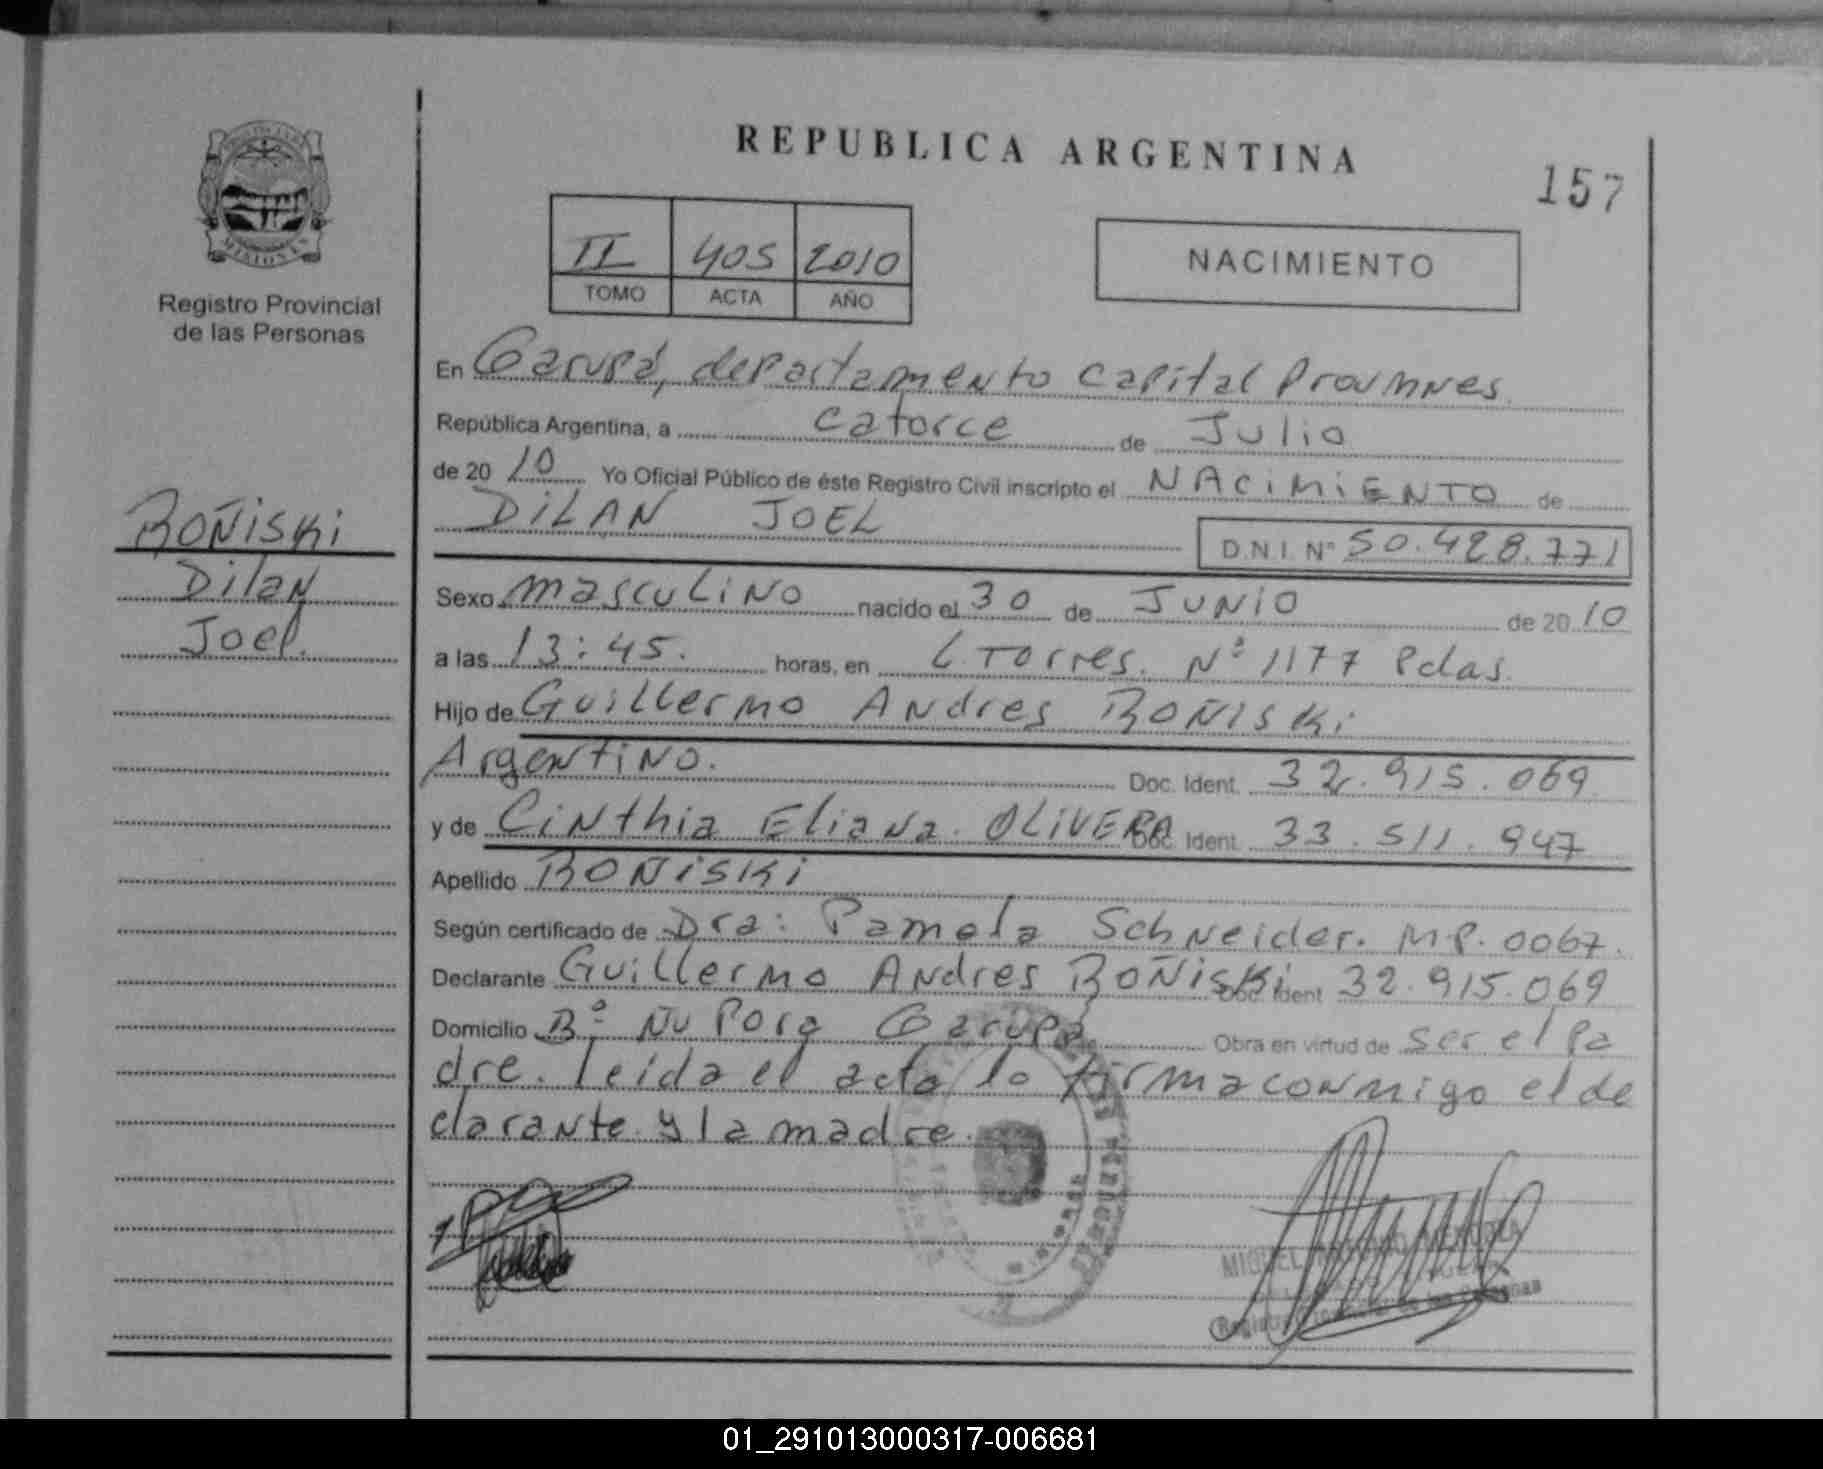 REPUBLICA ARGENTINA
157
MISIONES
Registro Provincial
de las Personas
II 405 2010
TOMO ACTA AÑO
NACIMIENTO
En Garupá, departamento Capital Prov Mnes
República Argentina, a catorce de Julio
de 2010 Yo Oficial Público de éste Registro Civil inscripto el NACIMIENTO de
DILAN JOEL
D.N.I. Nº 50.428.771
BOÑISKI
Dilan
Joel.
Sexo masculino nacido el 30 de JUNIO de 2010
a las 13:45. horas, en L. Torres. Nº 1177 Pdas.
Hijo de Guillermo Andres BOÑISKI
Argentino. Doc. Ident. 32.915.069
y de Cinthia Eliana. OLIVERA Doc. Ident. 33.511.947
Apellido BOÑISKI
Según certificado de Dra: Pamela Schneider. M.P. 0067.
Declarante Guillermo Andres BOÑISKI Doc. Ident 32.915.069
Domicilio Bº Ñu Pora Garupá Obra en virtud de ser el pa
dre. leida el acta lo firma conmigo el de
clarante y la madre.
MIGUEL
Registro Provincial de las Personas
01_291013000317-006681